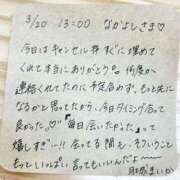 3/20 13:00 なかよしさま♡
今日はキャンセル枠すぐに埋めて
くれて本当にありがとう。何度か
連絡くれてたのに予定合わず、もっと先に
なるかと思ってたから、今日タイミング合って
良かった。♡"毎日会いたかなた"って
嬉しすぎー!! 会ってる間も、そういうこと
もっといっぱい言ってもいいんだよ〜
まいか